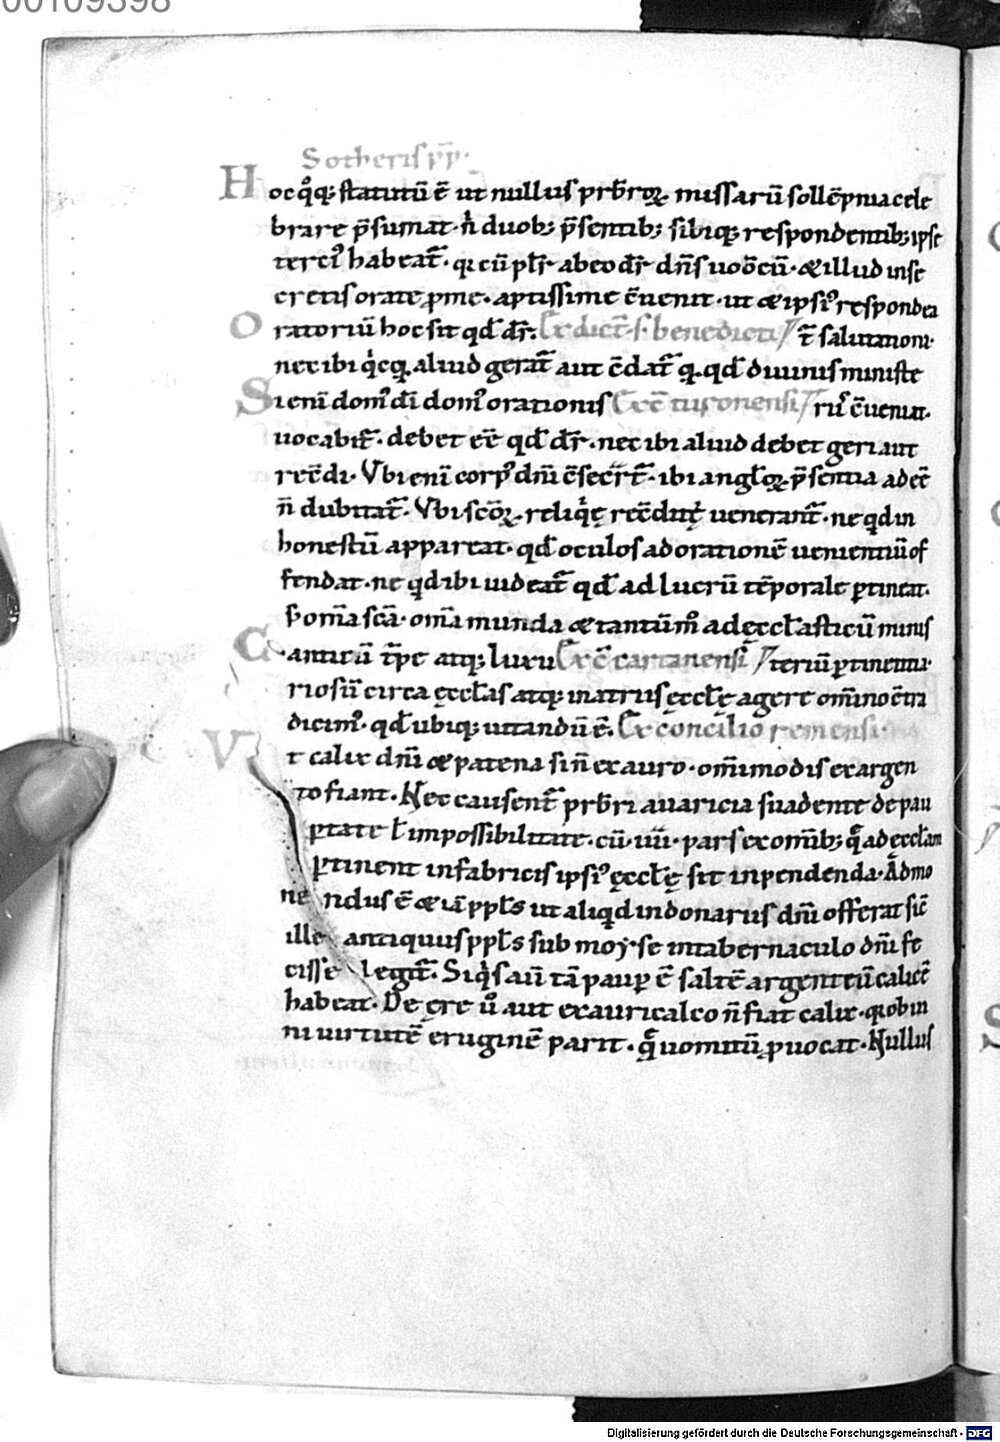 00109398
Sotheris pp̄.
Hoc q̊q; statutū ē ut nullus pr̄br̄oꝝ missarū sollēpnia cele
brare p̄sumat. n̊ duob; p̄sentib; sibiq; respondentib; ipse
terciꝰ habeat̄. q̇ cū pl̄r̄ ab eo dr̄ dn̄s uobcū. & illud in se
cretis orate ꝓ me. aptissime c̄uenit. ut & ipsiꝰ respondea
Oratoriū hoc sit qd̄ dr̄. Ex dict̄. s̄. benedicti / t̄ salutationi.
nec ibi q̇cq̄. aliud gerat̄ aut c̄dat̄ q̄. qd̄ diuinis ministe
Si enī domꝰ dī domꝰ orationis Ex c̄ turonensi / riꝰ c̄ueniat.
uocabit̄. debet eē qd̄ dr̄. nec ibi aliud debet geri aut
rec̄di. Vbi enī corpꝰ dn̄i c̄secr̄t̄. ibi angl̄oꝝ p̄sentia adeē
n̄ dubitat̄. Vbi sc̄oꝝ. reliq̇ę rec̄dūt̄ uenerant̄. ne qd̄ in
honestū appareat. qd̄ oculos ad orationē uenientiū of
fendat. ne qd̄ ibi uideat̄ qd̄ ad lucrū tēporale ꝑtineat.
S; om̄a sc̄a. om̄a munda & tantūm̊ ad ęccl̄asticū minis
Canticū t̄pe atq; luxu Ex c̄ cartanensi / teriū ꝑtinentia.
riosū circa ęccl̄as atq; matris ęccl̄ę agere om̄ino c̄tra
dicimꝰ. qd̄ ubiq; uitandū ē. Ex concilio remensi.
Vt calix dn̄i & patena si n̄ ex auro. om̄imodis ex argen
to fiant. Nec causent̄ pr̄br̄i auaricia suadente de pau
ꝑtate l̄ impossibilitate. cū. iiii. pars ex omīb; q̄ ad ęccl̄am
ꝑtinent in fabricis ipsiꝰ ęccl̄ę sit inpendenda. Admo
nendus ē & iā ppl̄s ut aliqd̄ in donariis dn̄i offerat sic̄
ille antiquus ppl̄s sub moyse in tabernaculo dn̄i fe
cisse legit̄. Siq̇s aū tā paup̄ ē saltē argenteū calicē
habeat. De ęre ů aut ex auricalco n̄ fiat calix. q̇ ob in
ni uirtutē eruginē parit. q̄ uomitū ꝓuocat. Nullus
Digitalisierung gefördert durch die Deutsche Forschungsgemeinschaft - DFG